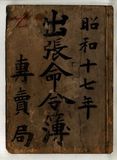 昭和十七年
出張命令簿
專賣局